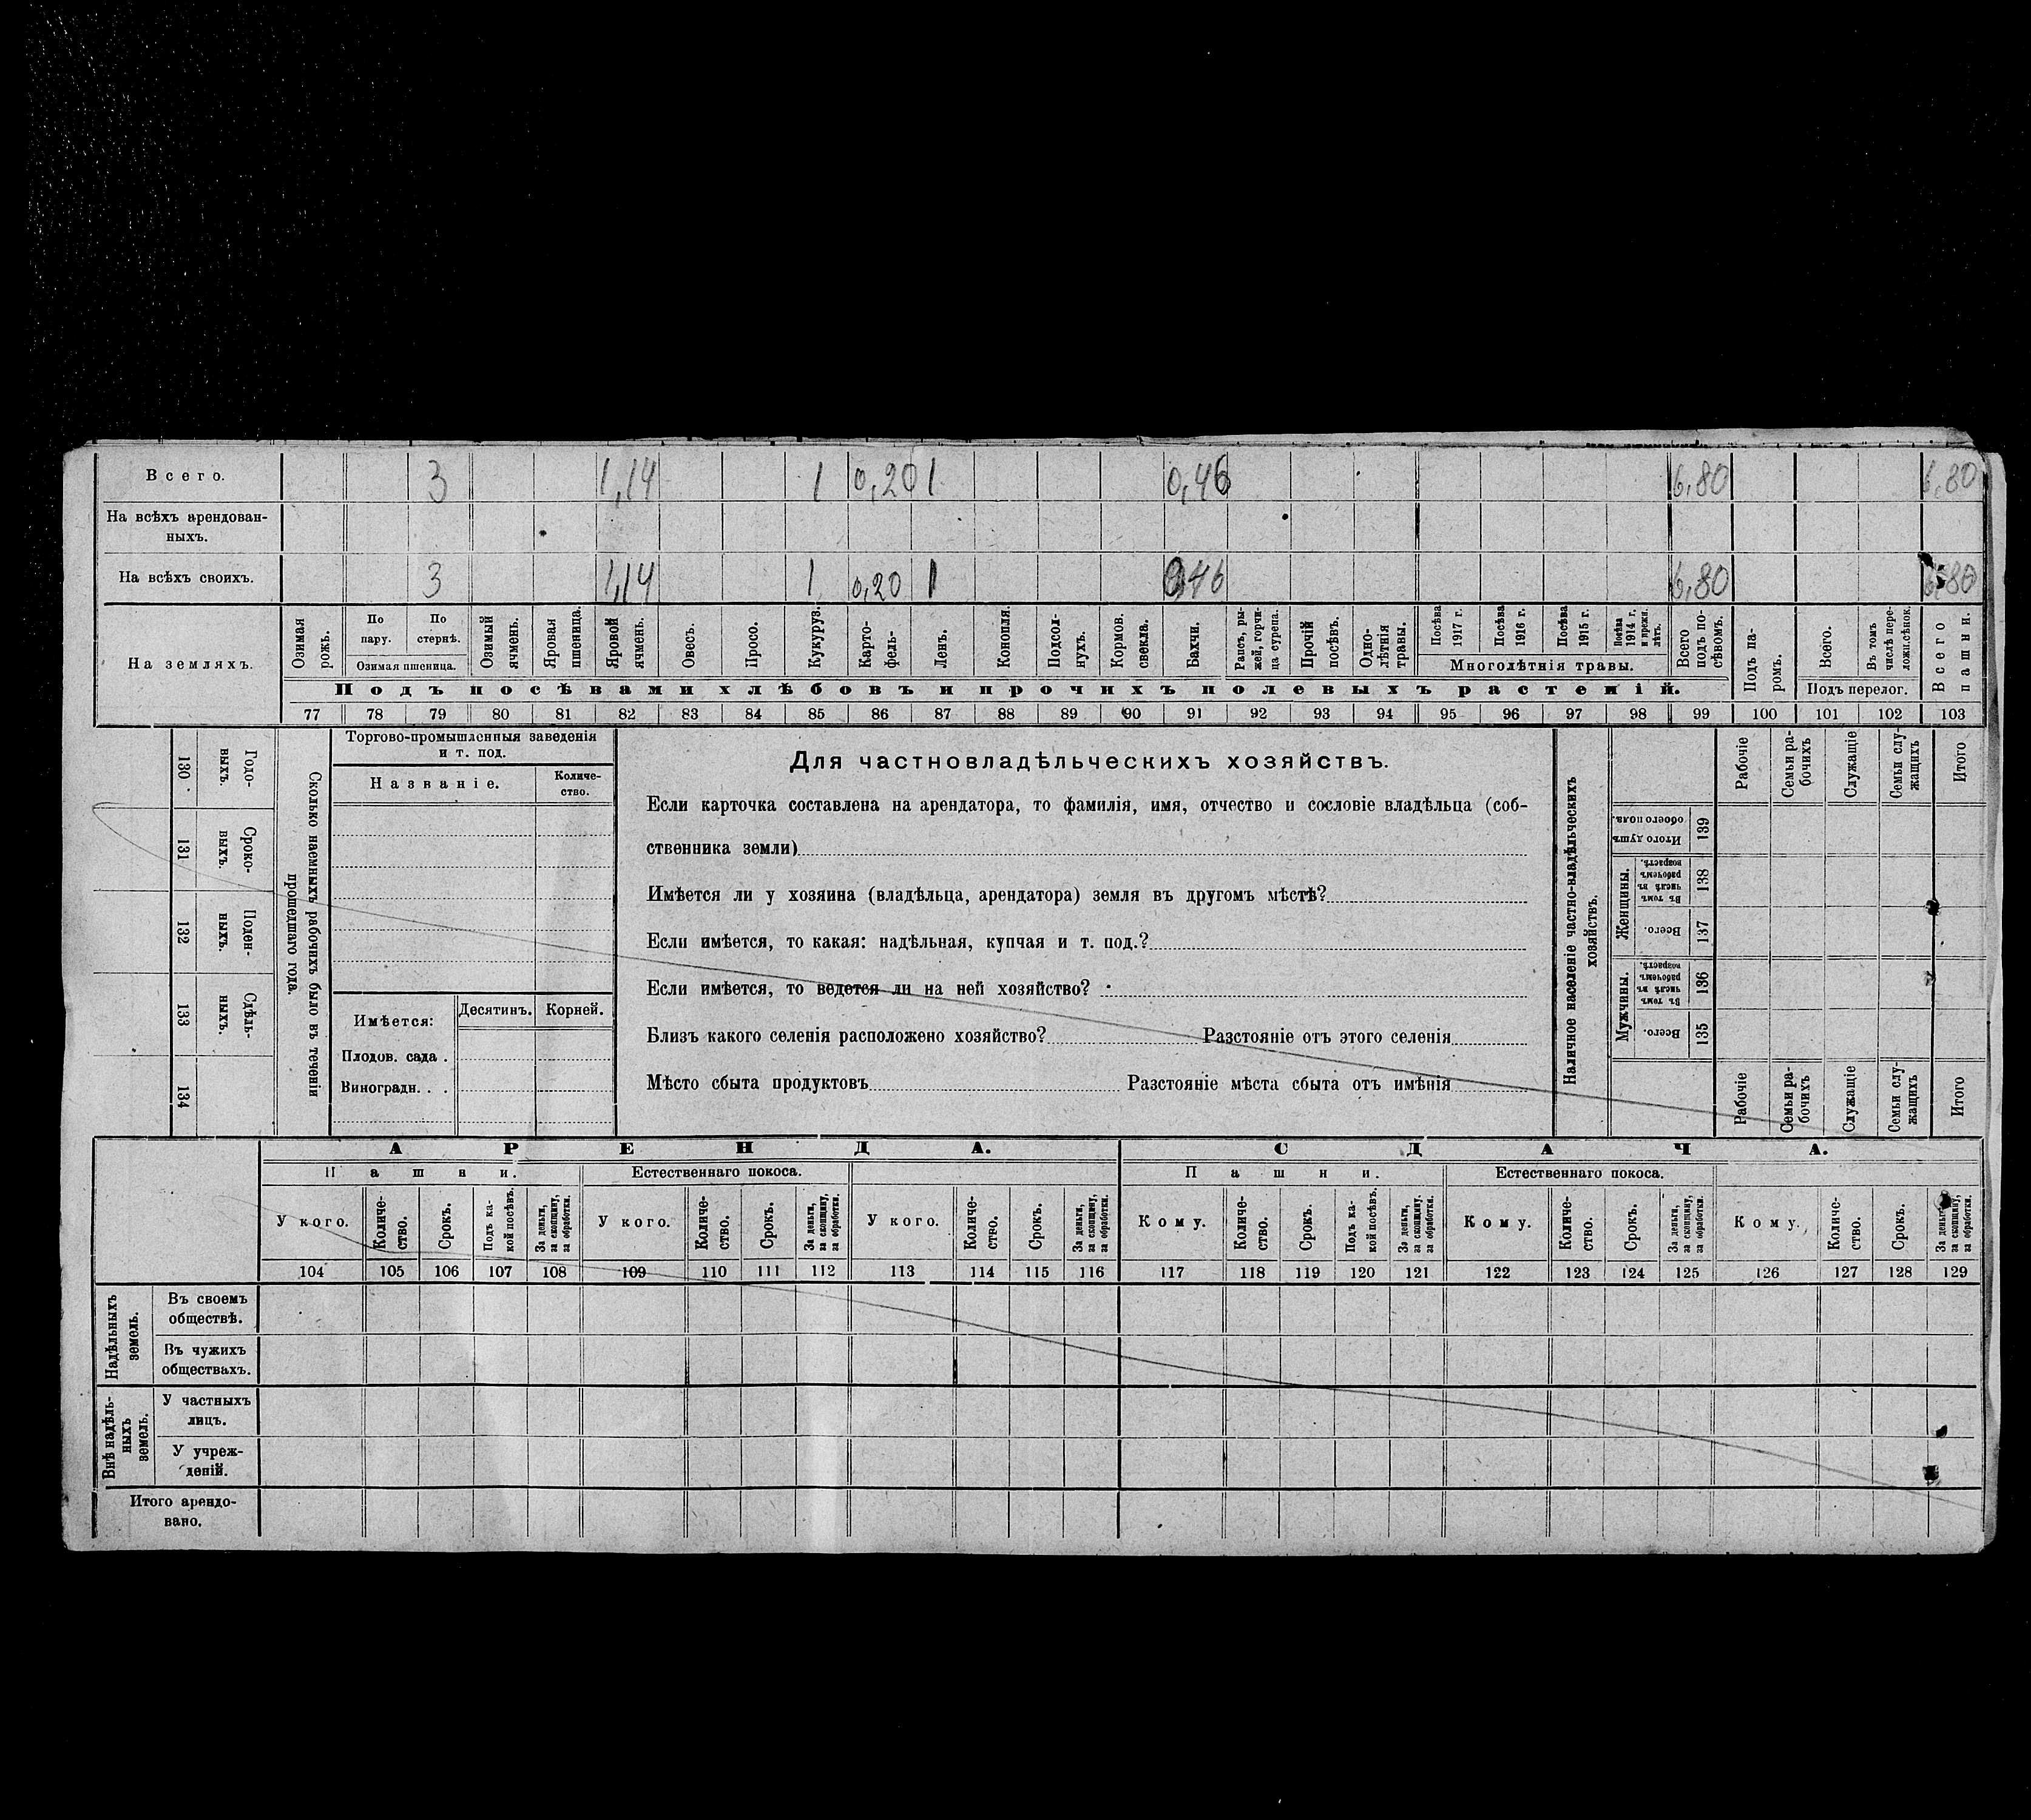 Всего. 3 1,14 1 0,20 1 0,46 6,80 6,80
На всѣхъ арендован-
ныхъ.
На всѣхъ своихъ. 3 1,14 1 0,20 1 0,46 6,80 6,80
На земляхъ.
Озимая рожь.
По пару.
По стернѣ.
Озимая пшеница.
Озимый ячмень.
Яровая пшеница.
Яровой ячмень.
Овесъ.
Просо.
Кукуруз.
Карто-
фель-
Ленъ.
Конопля.
Подсол-
нухъ.
Кормов.
свекла.
Бахчи.
Рапсъ, ры-
жей, горчи-
ца сурепа.
Прочій
посѣвъ.
Одно-
лѣтнія
травы.
Посѣва
1917 г.
Посѣва
1916 г.
Посѣва
1915 г.
Посѣва
1914 г.
и прежн.
лѣтъ.
Многолѣтнія травы.
Всего
подъ по-
сѣвомъ.
Подъ па-
ромъ.
Всего.
Въ томъ
числѣ пере-
ложн.сѣнок.
Подъ перелог.
Всего
пашни.
Подъ посѣвами хлѣбовъ и прочихъ полевыхъ растеній.
77 78 79 80 81 82 83 84 85 86 87 88 89 90 91 92 93 94 95 96 97 98 99 100 101 102 103
130 Годо-
выхъ.
131 Сроко-
выхъ.
132 Поден-
ныхъ.
133 Сдѣль-
ныхъ.
134
Сколько наемныхъ рабочихъ было въ теченіи
прошедшаго года.
Торгово-промышленныя заведенія
и т. под.
Названіе.
Количе-
ство.
Имѣется:
Десятинъ. Корней.
Плодов. сада .
Виноградн. . .
Для частновладѣльческихъ хозяйствъ.
Если карточка составлена на арендатора, то фамилія, имя, отчество и сословіе владѣльца (соб-
ственника земли)
Имѣется ли у хозяина (владѣльца, арендатора) земля въ другомъ мѣстѣ?
Если имѣется, то какая: надѣльная, купчая и т. под.?
Если имѣется, то ведется ли на ней хозяйство?
Близъ какого селенія расположено хозяйство? Разстояніе отъ этого селенія
Мѣсто сбыта продуктовъ Разстояніе мѣста сбыта отъ имѣнія
Наличное населеніе частно-владѣльческихъ
хозяйствъ.
Рабочіе
Семьи ра-
бочихъ
Служащіе
Семьи слу-
жащихъ
Итого
Итого душъ
обоего пола.
139
Женщины.
Въ томъ
числѣ въ
рабочемъ
возрастѣ.
138
Всего.
137
Мужчины.
Въ томъ
числѣ въ
рабочемъ
возрастѣ.
136
Всего.
135
Рабочіе
Семьи ра-
бочихъ
Служащіе
Семьи слу-
жащихъ
Итого
АРЕНДА. СДАЧА.
Пашни. Естественнаго покоса. Пашни. Естественнаго покоса.
У кого.
Количе-
ство.
Срокъ.
Подъ ка-
кой посѣвъ.
За деньги,
за скопщину,
за обработки.
У кого.
Количе-
ство.
Срокъ.
За деньги,
за скопщину,
за обработки.
У кого.
Количе-
ство.
Срокъ.
За деньги,
за скопщину,
за обработки.
Кому.
Количе-
ство.
Срокъ.
Подъ ка-
кой посѣвъ.
За деньги,
за скопщину,
за обработки.
Кому.
Количе-
ство.
Срокъ.
За деньги,
за скопщину,
за обработки.
Кому.
Количе-
ство.
Срокъ.
За деньги,
за скопщину,
за обработки.
104 105 106 107 108 109 110 111 112 113 114 115 116 117 118 119 120 121 122 123 124 125 126 127 128 129
Надѣльныхъ
земель.
Въ своемъ
обществѣ.
Въ чужихъ
обществахъ.
Внѣ надѣль-
ныхъ
земель.
У частныхъ
лицъ.
У учреж-
деній.
Итого арендо-
вано.